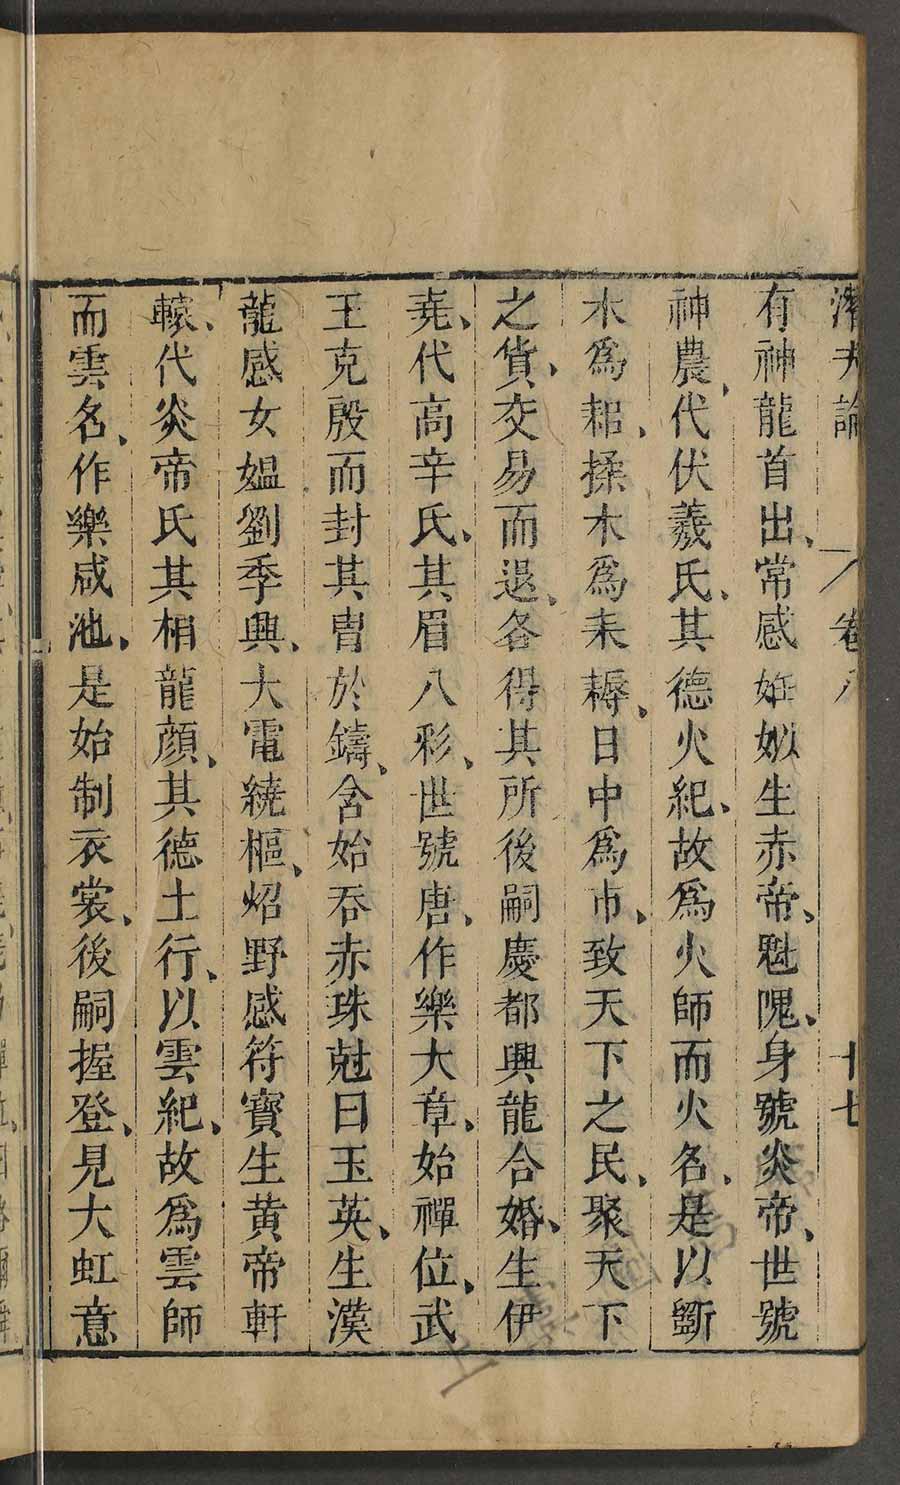 潛夫論 卷八 十七
有神龍首出、常感妊姒生赤帝、魁隗、身號炎帝、世號
神農、代伏羲氏、其德火紀、故爲火師而火名、是以斵
木爲耜、揉木爲耒耨、日中爲市、致天下之民、聚天下
之貨、交易而退、各得其所後嗣慶都與龍合婚、生伊
堯、代高辛氏、其眉八彩、世號唐、作樂大章、始禪位、武
王克殷而封其胄於鑄、含始吞赤珠尅曰玉英、生漢
龍感女媼劉季興、大電繞樞、炤野感符寶生黄帝軒
轅、代炎帝氏其相龍顔、其德土行、以雲紀、故爲雲師
而雲名、作樂咸池、是始制衣裳、後嗣握登、見大虹意